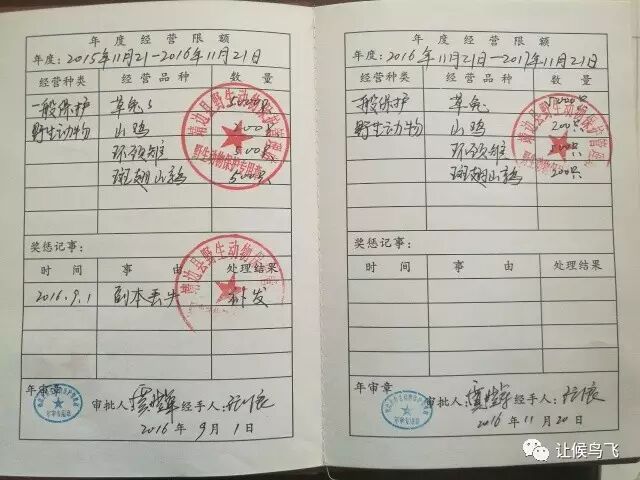 年度经营限额
年度：2015年11月21—2016年11月21日
经营种类 经营品种 数量
一般保护 草兔
野生动物 山鸡
环颈雉
斑翅山鹑 500只
靖边县野生动物
野生动物保护专用章
奖惩记事：
时间 事由 处理结果
2016.9.1 副本丢失 补发
靖边县野生动物
年审章
审批人： 经手人：
2016年9月1日
年度经营限额
年度：2016年11月21日—2017年11月21日
经营种类 经营品种 数量
一般保护 草兔
野生动物 山鸡 200只
环颈雉 200只
斑翅山鹑 200只
奖惩记事：
时间 事由 处理结果
年审章
审批人： 经手人：
2016年11月20日
让候鸟飞